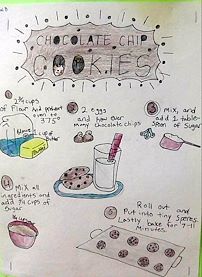 CHOCOLATE CHIP
COOKIES
1¾ cups
of flour and preheat
oven to
375°
1 cup of
Butter
2 eggs
and how ever
many chocolate chips
Mix, and
add 1 table-
spoon of Sugar
Mix all
ingredients and
add ¾ cups of
Sugar
Roll out and
Put into tiny Spheres
Lastly bake for 9-11
Minutes